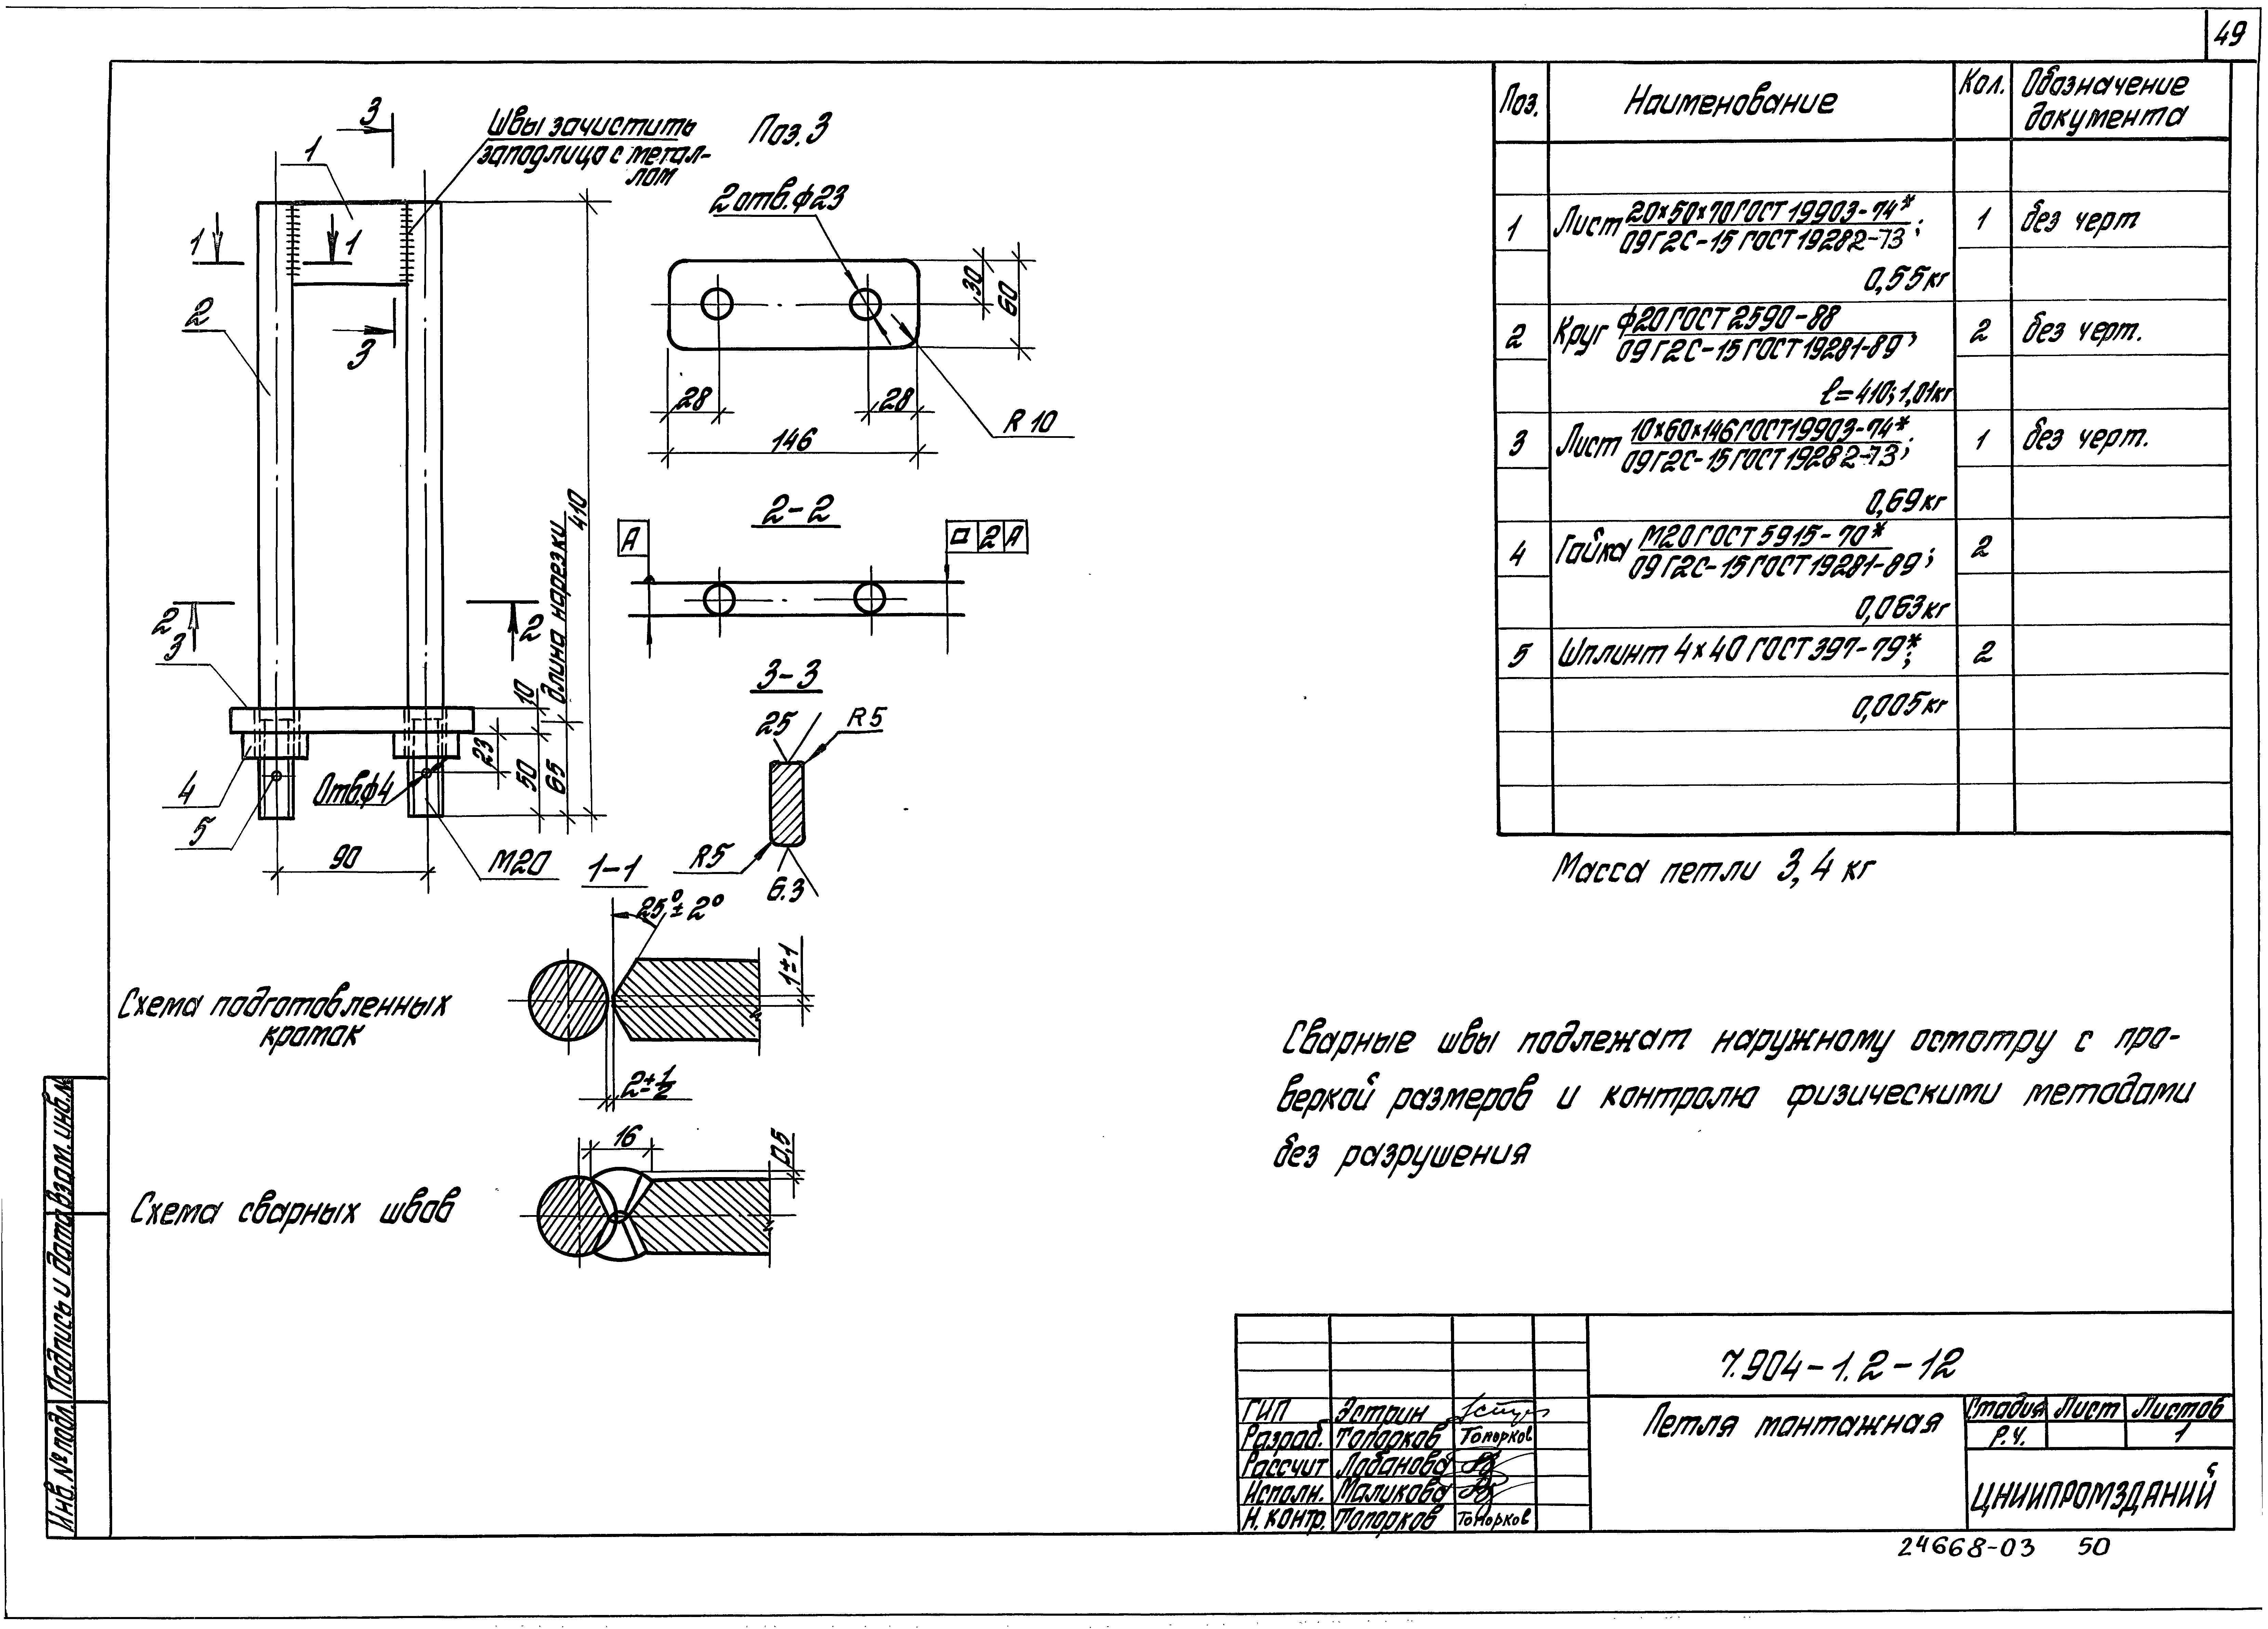 49
3
Швы зачистить
заподлицо с метал-
лом
1
1
1
2
3
2
3
2
4
5
Отв.ф4
90
М20
23
10
50
65
длина нарезки
410
Поз.3
2 отв.ф23
30
60
28
28
146
R 10
2-2
А
2 А
3-3
25
R5
R5
6.3
1-1
25°±2°
1±1
Схема подготовленных
кромок
16
0,5
Схема сварных швов
Поз.
Наименование
Кол.
Обозначение
документа
1
Лист 20×50×70 ГОСТ 19903-74*
09Г2С-15 ГОСТ 19282-73;
1
без черт
0,55кг
2
Круг ф20 ГОСТ 2590-88
09Г2С-15 ГОСТ 19281-89;
2
без черт.
ℓ=410; 1,01кг
3
Лист 10×60×146 ГОСТ 19903-74*
09Г2С-15 ГОСТ 19282-73;
1
без черт.
0,69кг
4
Гайка М20 ГОСТ 5915-70*
09Г2С-15 ГОСТ 19281-89;
2
0,063кг
5
Шплинт 4×40 ГОСТ 397-79*;
2
0,005кг
Масса петли 3,4 кг
Сварные швы подлежат наружному осмотру с про-
веркой размеров и контролю физическими методами
без разрушения
7.904-1.2-12
ГИП Эстрин
Разраб. Топорков Топорков
Рассчит Лобанова
Исполн. Маликова
Н.контр. Топорков Топорков
Петля монтажная
Стадия Лист Листов
Р.Ч. 1
ЦНИИПРОМЗДАНИЙ
24668-03 50
Инв.№ подл.
Подпись и дата
Взам.инв.№